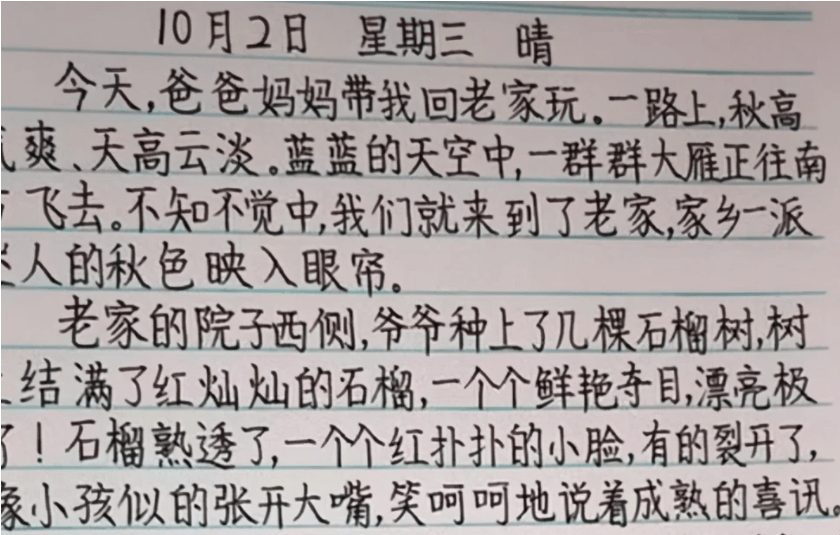 10月2日 星期三 晴
今天,爸爸妈妈带我回老家玩。一路上,秋高
气爽、天高云淡。蓝蓝的天空中,一群群大雁正往南
飞去。不知不觉中,我们就来到了老家,家乡一派
人的秋色映入眼帘。
老家的院子西侧,爷爷种上了几棵石榴树,树
上结满了红灿灿的石榴,一个个鲜艳夺目,漂亮极
了！石榴熟透了,一个个红扑扑的小脸,有的裂开了,
像小孩似的张开大嘴,笑呵呵地说着成熟的喜讯。